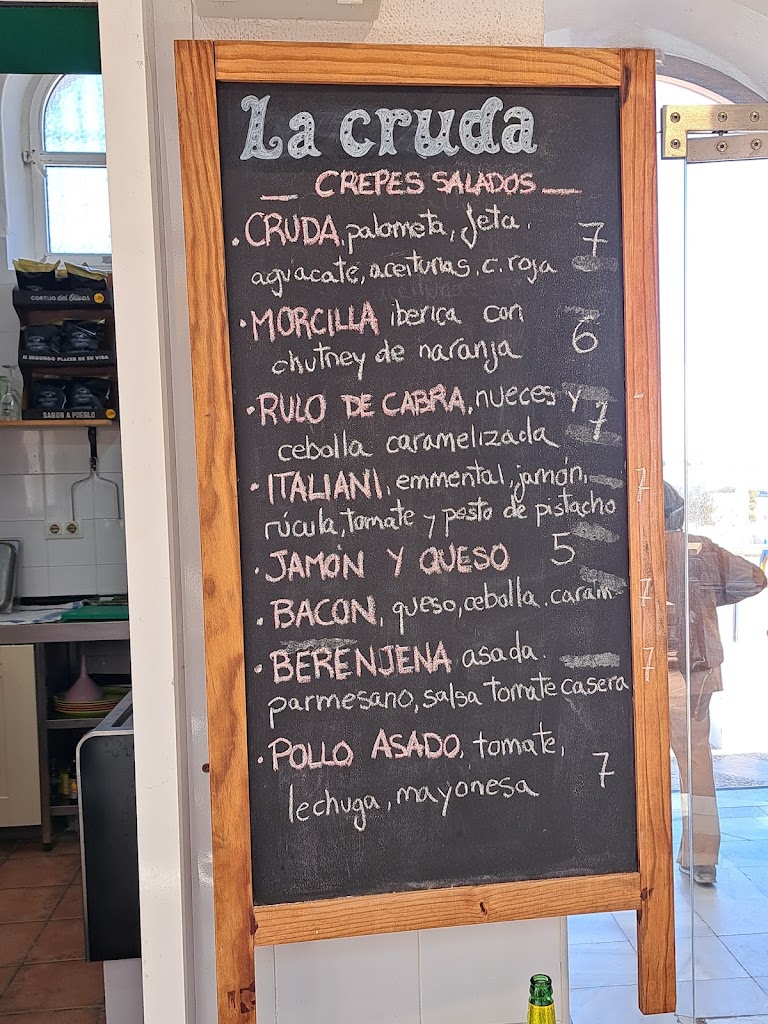 La cruda
CREPES SALADOS
. CRUDA, palometa, feta, 7
aguacate, aceitunas, c. roja
. MORCILLA iberica con 6
chutney de naranja
. RULO DE CABRA, nueces y 7
cebolla caramelizada
. ITALIANI, emmental, jamón, 7
rúcula, tomate y pesto de pistacho
. JAMÓN Y QUESO 5
. BACON, queso, cebolla. caram 7
. BERENJENA asada. 7
parmesano, salsa tomate casera
. POLLO ASADO, tomate,
lechuga, mayonesa 7
CORTIJO del Olivar
EL SEGUNDO PLACER DE SU VIDA
SABOR A PUEBLO